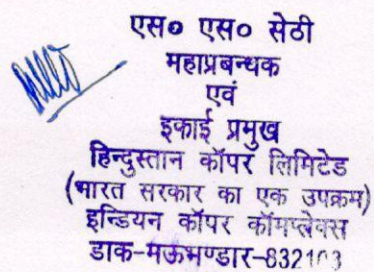 एस० एस० सेठी
महाप्रबन्धक
एवं
इकाई प्रमुख
हिन्दुस्तान कॉपर लिमिटेड
(भारत सरकार का एक उपक्रम)
इन्डियन कॉपर कॉमप्लेक्स
डाक-मऊभण्डार-832103